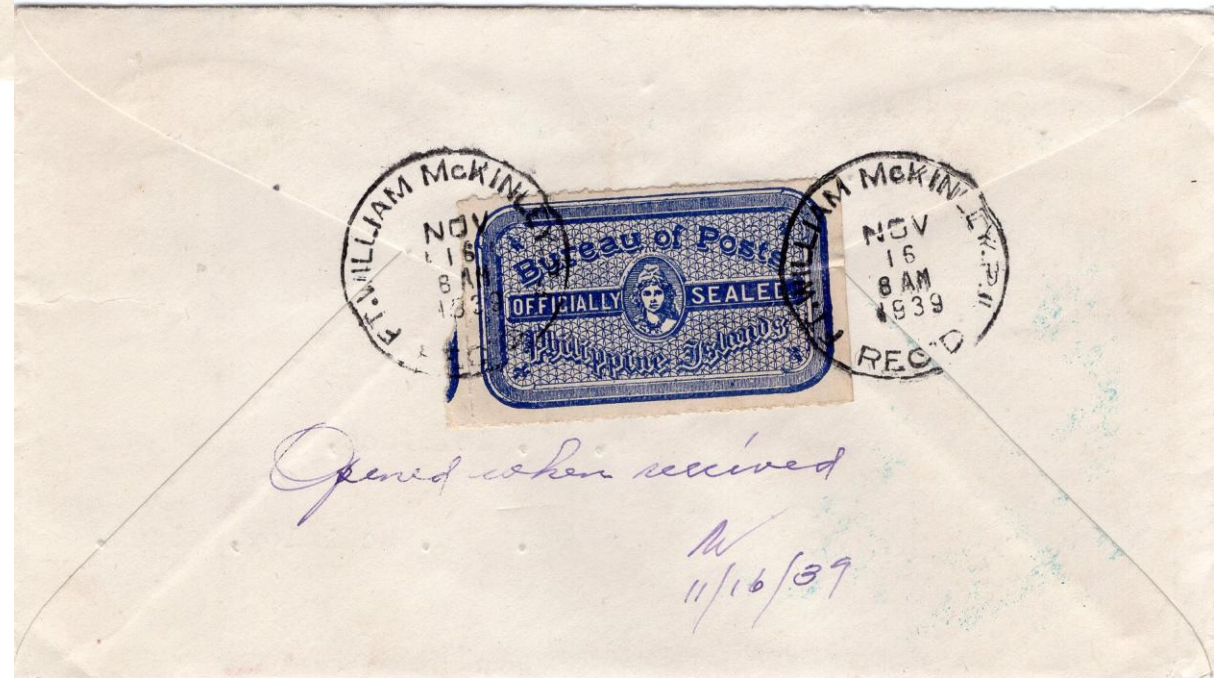 FT. WILLIAM McKINLEY
NOV
16
8 AM
1939
Bureau of Posts
OFFICIALLY SEALED
Philippine Islands
FT. WILLIAM McKINLEY, P.I.
NOV
16
8 AM
1939
REC'D
Opened when received
11/16/39